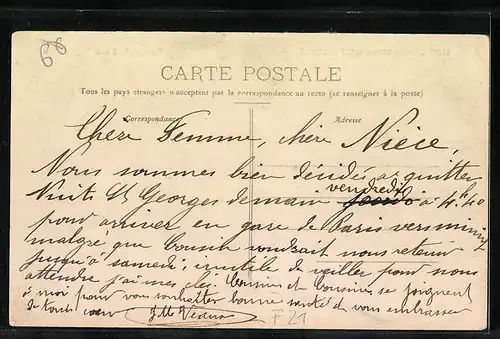 66
CARTE POSTALE
Tous les pays étrangers n'acceptent pas la correspondance au recto (se renseigner à la poste)
Correspondance
Adresse
Chère Femme, chère Nièce,
Nous sommes bien décidés a quitter
vendredi
Nuits St Georges demain jeudi à 4h40
pour arriver en gare de Paris vers minuit
malgré que cousin voudrait nous retenir
jusqu'à samedi, inutile de veiller pour nous
attendre j'ai mes clés. Cousines et cousins se joignent
à moi pour vous souhaiter bonne santé et vous embrasser
de tout cœur
F21